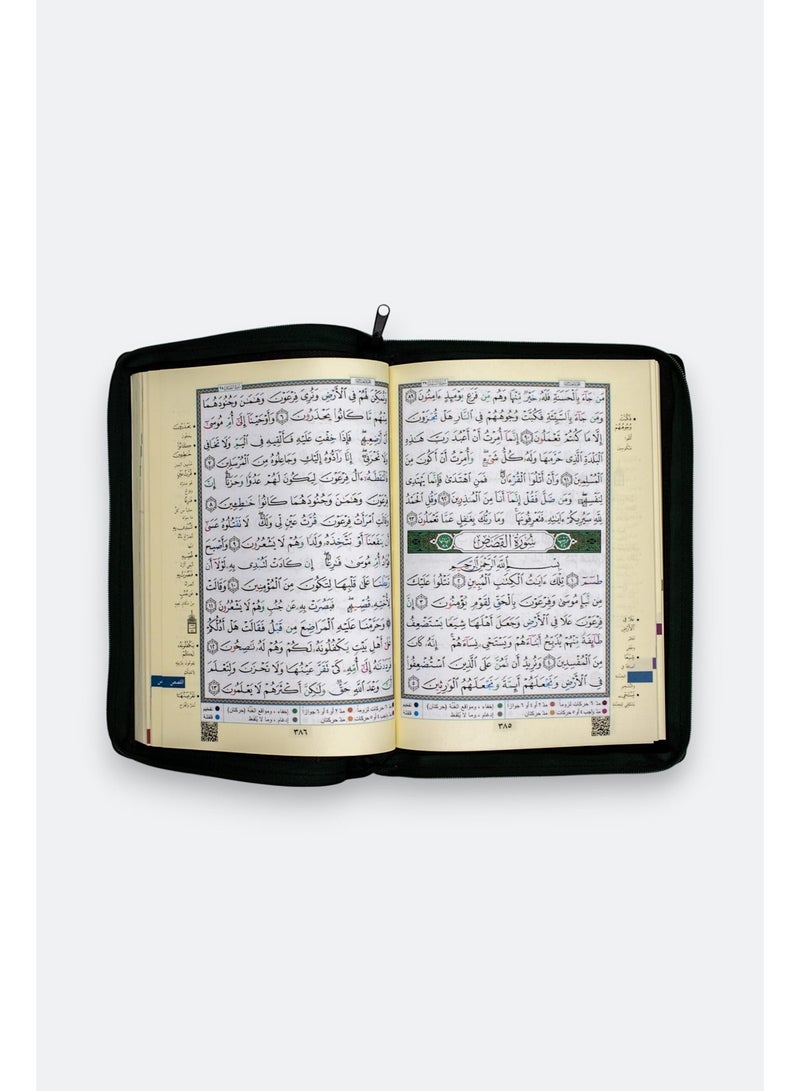 مَن جَآءَ بِٱلْحَسَنَةِ فَلَهُۥ خَيْرٌ مِّنْهَا وَهُم مِّن فَزَعٍ يَوْمَئِذٍ ءَامِنُونَ ٨٩
وَمَن جَآءَ بِٱلسَّيِّئَةِ فَكُبَّتْ وُجُوهُهُمْ فِى ٱلنَّارِ هَلْ تُجْزَوْنَ
إِلَّا مَا كُنتُمْ تَعْمَلُونَ ٩٠ إِنَّمَآ أُمِرْتُ أَنْ أَعْبُدَ رَبَّ هَـٰذِهِ
ٱلْبَلْدَةِ ٱلَّذِى حَرَّمَهَا وَلَهُۥ كُلُّ شَىْءٍ وَأُمِرْتُ أَنْ أَكُونَ مِنَ
ٱلْمُسْلِمِينَ ٩١ وَأَنْ أَتْلُوَا۟ ٱلْقُرْءَانَ فَمَنِ ٱهْتَدَىٰ فَإِنَّمَا يَهْتَدِى
لِنَفْسِهِۦ وَمَن ضَلَّ فَقُلْ إِنَّمَآ أَنَا۠ مِنَ ٱلْمُنذِرِينَ ٩٢ وَقُلِ ٱلْحَمْدُ
لِلَّهِ سَيُرِيكُمْ ءَايَـٰتِهِۦ فَتَعْرِفُونَهَا وَمَا رَبُّكَ بِغَـٰفِلٍ عَمَّا تَعْمَلُونَ ٩٣
سُورَةُ القَصَصِ
بِسْمِ ٱللَّهِ ٱلرَّحْمَـٰنِ ٱلرَّحِيمِ
طسٓمٓ ١ تِلْكَ ءَايَـٰتُ ٱلْكِتَـٰبِ ٱلْمُبِينِ ٢ نَتْلُوا۟ عَلَيْكَ
مِن نَّبَإِ مُوسَىٰ وَفِرْعَوْنَ بِٱلْحَقِّ لِقَوْمٍ يُؤْمِنُونَ ٣ إِنَّ
فِرْعَوْنَ عَلَا فِى ٱلْأَرْضِ وَجَعَلَ أَهْلَهَا شِيَعًا يَسْتَضْعِفُ
طَآئِفَةً مِّنْهُمْ يُذَبِّحُ أَبْنَآءَهُمْ وَيَسْتَحْىِۦ نِسَآءَهُمْ إِنَّهُۥ كَانَ
مِنَ ٱلْمُفْسِدِينَ ٤ وَنُرِيدُ أَن نَّمُنَّ عَلَى ٱلَّذِينَ ٱسْتُضْعِفُوا۟
فِى ٱلْأَرْضِ وَنَجْعَلَهُمْ أَئِمَّةً وَنَجْعَلَهُمُ ٱلْوَٰرِثِينَ ٥
مدّ ٦ حركات لزوما مدّ ٢ أو ٤ أو ٦ جوازا إخفاء، ومواقع الغنة (حركتان) تفخيم
مدّ واجب ٤ أو ٥ حركات مدّ حركتان إدغام، وما لا يلفظ قلقلة
٣٨٥
وَنُمَكِّنَ لَهُمْ فِى ٱلْأَرْضِ وَنُرِىَ فِرْعَوْنَ وَهَـٰمَـٰنَ وَجُنُودَهُمَا
مِنْهُم مَّا كَانُوا۟ يَحْذَرُونَ ٦ وَأَوْحَيْنَآ إِلَىٰٓ أُمِّ مُوسَىٰٓ
أَنْ أَرْضِعِيهِ فَإِذَا خِفْتِ عَلَيْهِ فَأَلْقِيهِ فِى ٱلْيَمِّ وَلَا تَخَافِى
وَلَا تَحْزَنِىٓ إِنَّا رَآدُّوهُ إِلَيْكِ وَجَاعِلُوهُ مِنَ ٱلْمُرْسَلِينَ ٧
فَٱلْتَقَطَهُۥٓ ءَالُ فِرْعَوْنَ لِيَكُونَ لَهُمْ عَدُوًّا وَحَزَنًا إِنَّ
فِرْعَوْنَ وَهَـٰمَـٰنَ وَجُنُودَهُمَا كَانُوا۟ خَـٰطِـِٔينَ ٨
وَقَالَتِ ٱمْرَأَتُ فِرْعَوْنَ قُرَّتُ عَيْنٍ لِّى وَلَكَ لَا تَقْتُلُوهُ عَسَىٰٓ
أَن يَنفَعَنَآ أَوْ نَتَّخِذَهُۥ وَلَدًا وَهُمْ لَا يَشْعُرُونَ ٩ وَأَصْبَحَ
فُؤَادُ أُمِّ مُوسَىٰ فَـٰرِغًا إِن كَادَتْ لَتُبْدِى بِهِۦ لَوْلَآ أَن
رَّبَطْنَا عَلَىٰ قَلْبِهَا لِتَكُونَ مِنَ ٱلْمُؤْمِنِينَ ١٠ وَقَالَتْ
لِأُخْتِهِۦ قُصِّيهِ فَبَصُرَتْ بِهِۦ عَن جُنُبٍ وَهُمْ لَا يَشْعُرُونَ ١١
وَحَرَّمْنَا عَلَيْهِ ٱلْمَرَاضِعَ مِن قَبْلُ فَقَالَتْ هَلْ أَدُلُّكُمْ
عَلَىٰٓ أَهْلِ بَيْتٍ يَكْفُلُونَهُۥ لَكُمْ وَهُمْ لَهُۥ نَـٰصِحُونَ ١٢
فَرَدَدْنَـٰهُ إِلَىٰٓ أُمِّهِۦ كَىْ تَقَرَّ عَيْنُهَا وَلَا تَحْزَنَ وَلِتَعْلَمَ
أَنَّ وَعْدَ ٱللَّهِ حَقٌّ وَلَـٰكِنَّ أَكْثَرَهُمْ لَا يَعْلَمُونَ ١٣
مدّ ٦ حركات لزوما مدّ ٢ أو ٤ أو ٦ جوازا إخفاء، ومواقع الغنة (حركتان) تفخيم
مدّ واجب ٤ أو ٥ حركات مدّ حركتان إدغام، وما لا يلفظ قلقلة
٣٨٦
القصص